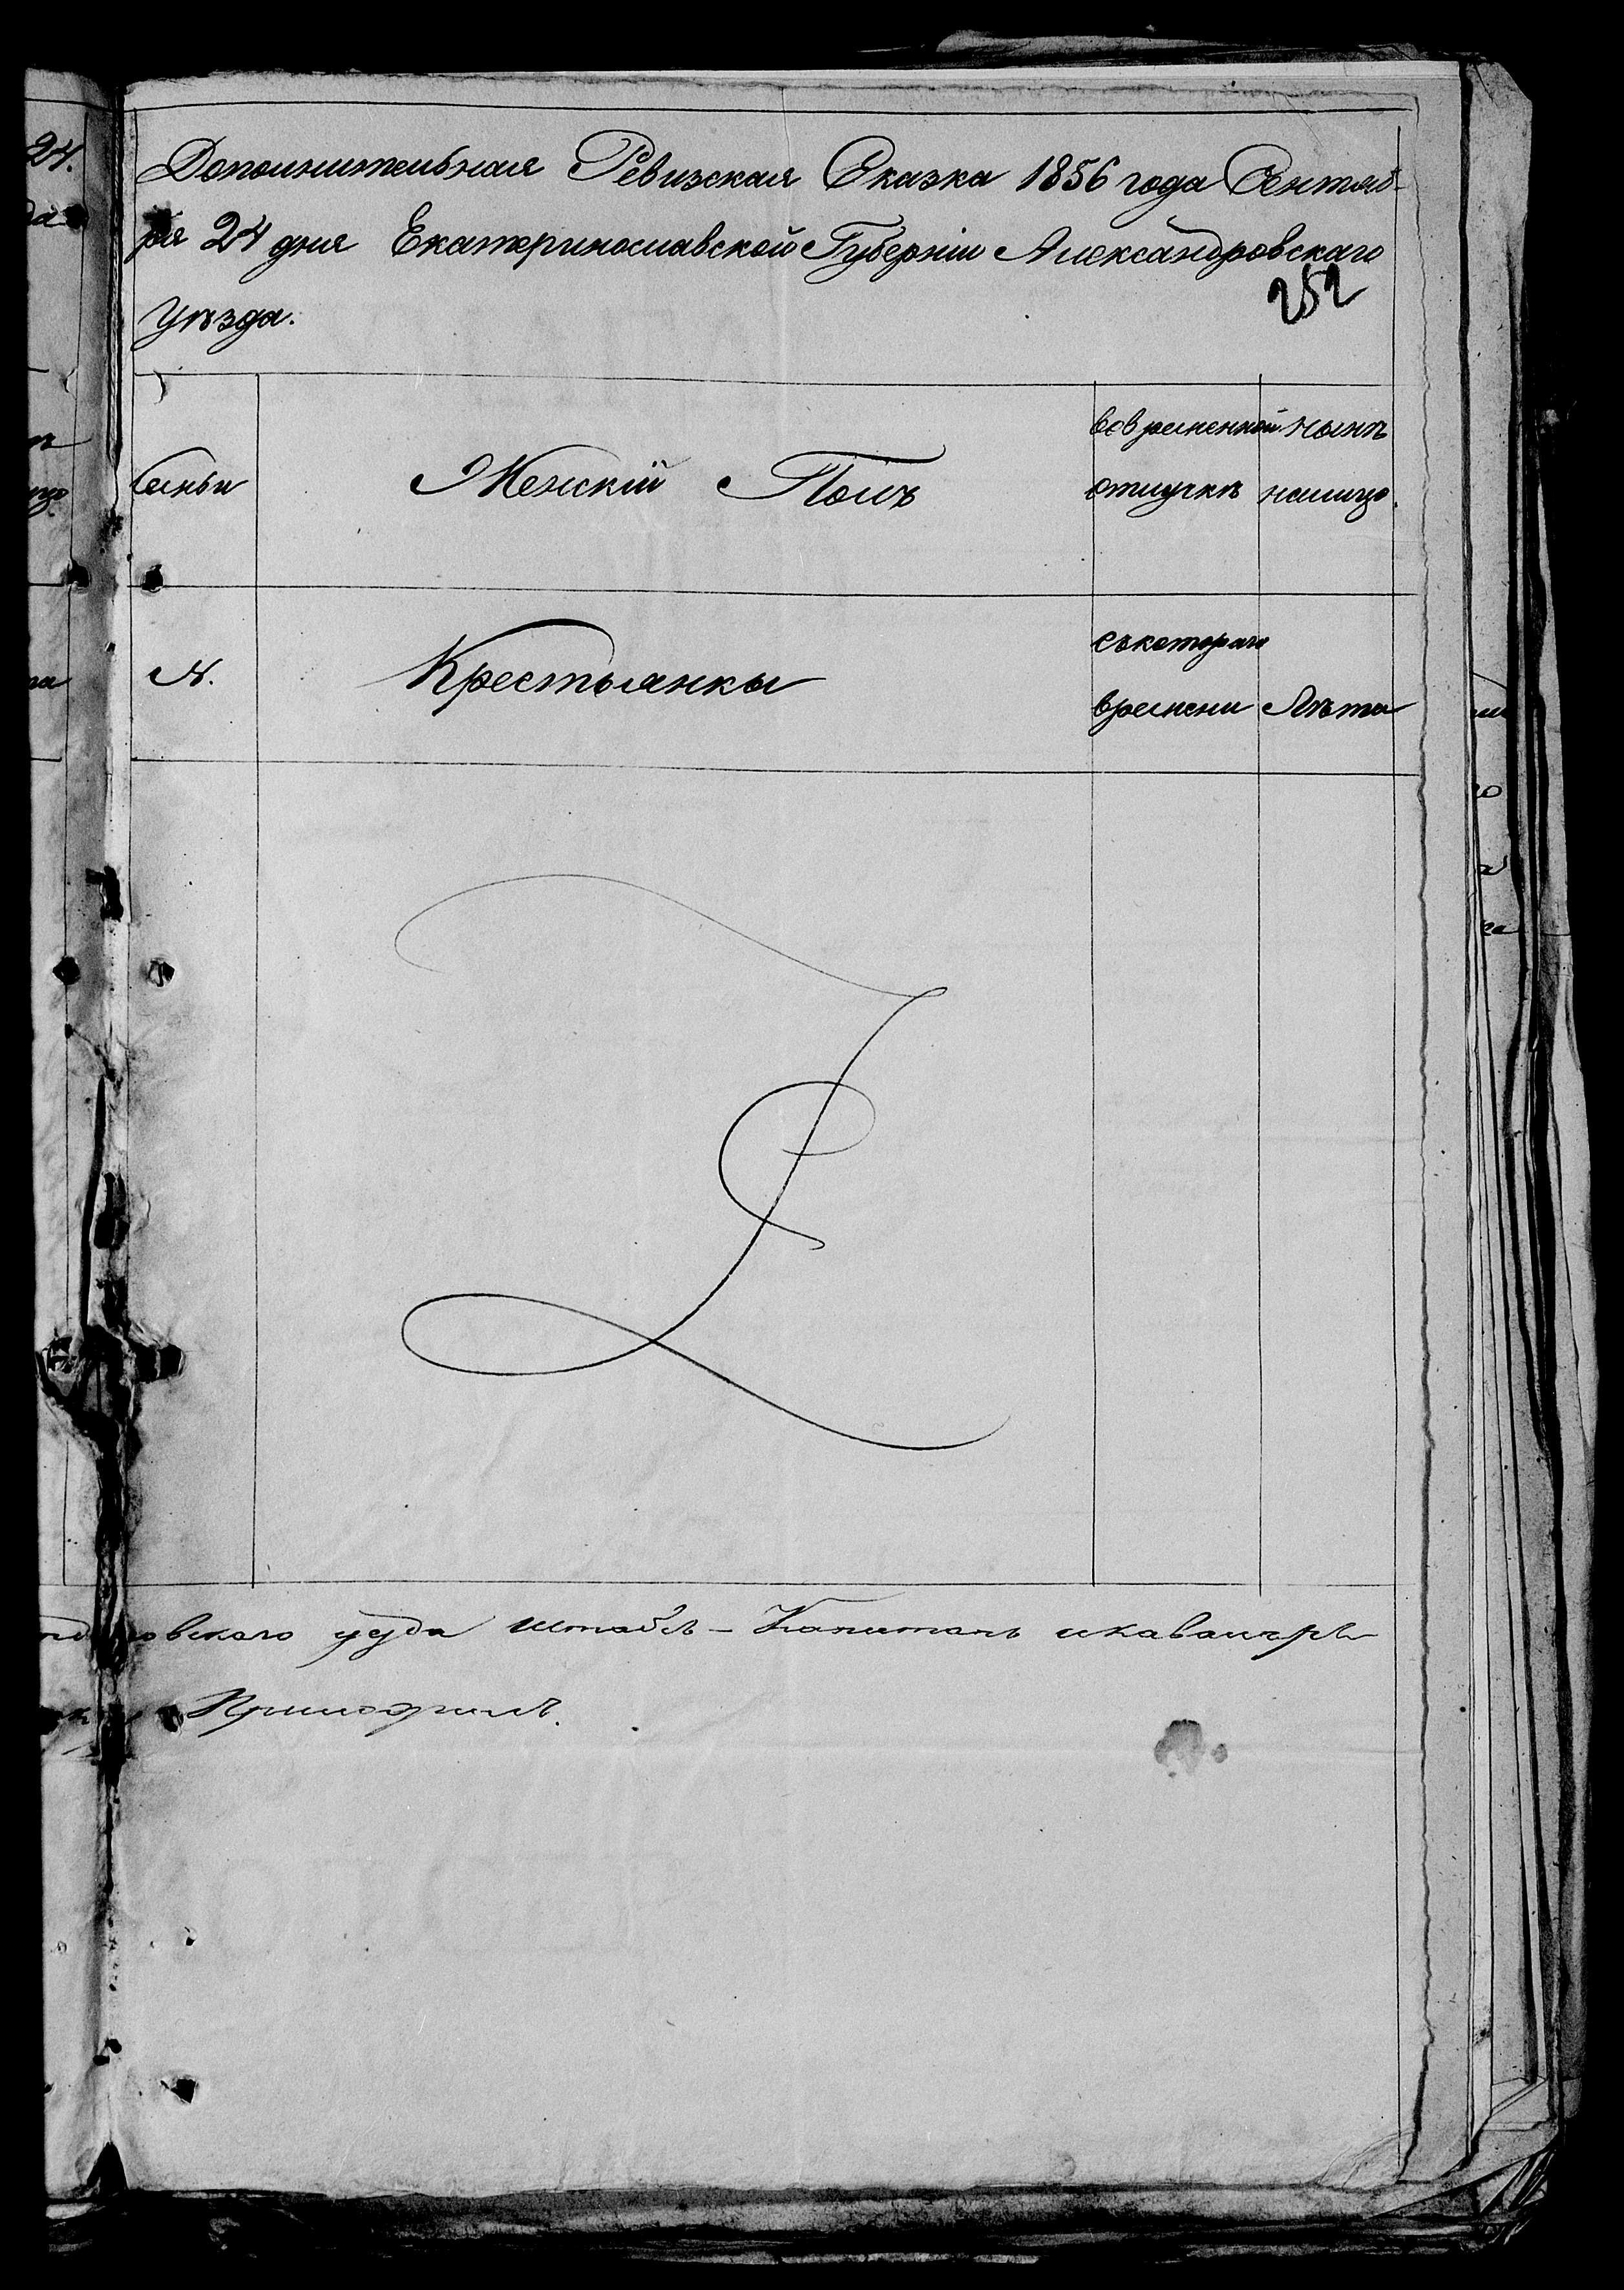 Дополнительная Ревизская Сказка 1856 года Сентяб-
ря 24 дня Екатеринославской Губерніи Александровскаго
Уѣзда.
252
Семьи
Женскій Полъ
вовременной
отлучкѣ
нынѣ
налицо.
N.
Крестьянки
съкотораго
времени
Лѣта
овского уезда Штабсъ-Капитанъ икавалеръ